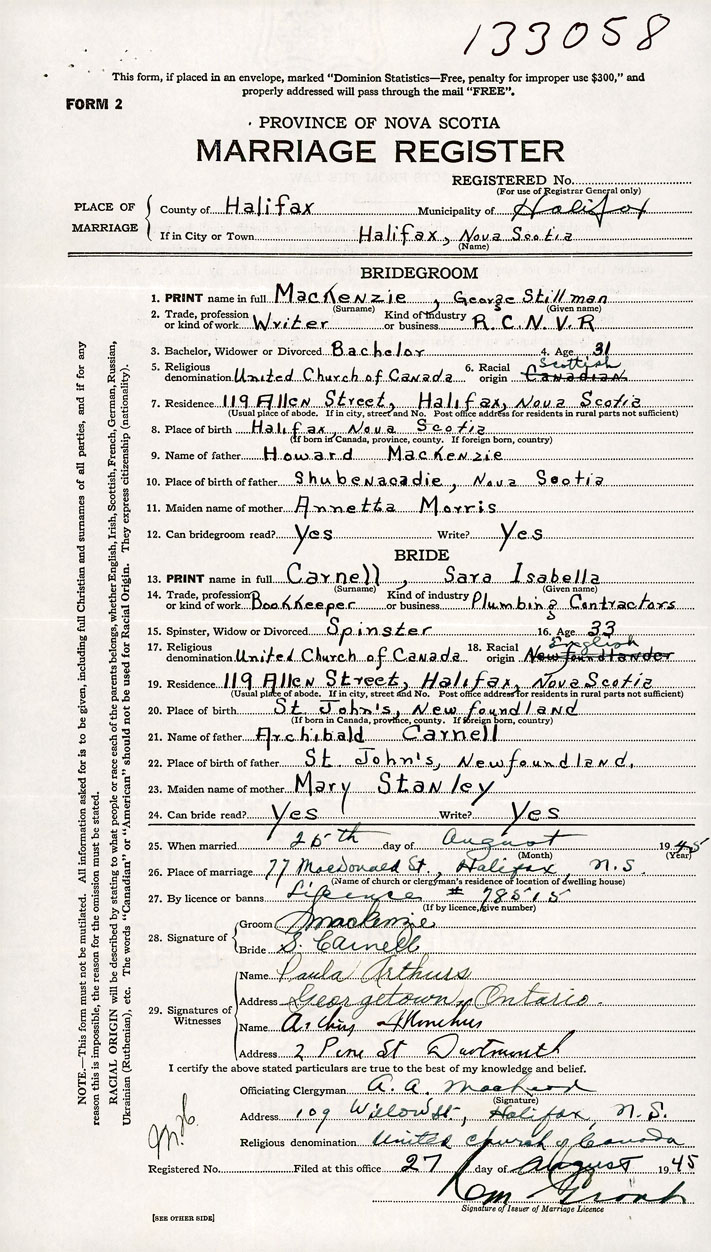 133058
This form, if placed in an envelope, marked "Dominion Statistics—Free, penalty for improper use $300," and
properly addressed will pass through the mail "FREE".
FORM 2
PROVINCE OF NOVA SCOTIA
MARRIAGE REGISTER
REGISTERED No.
(For use of Registrar General only)
PLACE OF MARRIAGE
County of Halifax Municipality of Halifax
If in City or Town Halifax, Nova Scotia
(Name)
BRIDEGROOM
1. PRINT name in full MacKenzie, George Stillman
(Surname) (Given name)
2. Trade, profession or kind of work Writer Kind of industry or business R.C.N.V.R
3. Bachelor, Widower or Divorced Bachelor 4. Age 31
5. Religious denomination United Church of Canada 6. Racial origin Scottish Canadian
7. Residence 119 Allen Street, Halifax, Nova Scotia
(Usual place of abode. If in city, street and No. Post office address for residents in rural parts not sufficient)
8. Place of birth Halifax, Nova Scotia
(If born in Canada, province, county. If foreign born, country)
9. Name of father Howard MacKenzie
10. Place of birth of father Shubenacadie, Nova Scotia
11. Maiden name of mother Annetta Morris
12. Can bridegroom read? Yes Write? Yes
BRIDE
13. PRINT name in full Carnell, Sara Isabella
(Surname) (Given name)
14. Trade, profession or kind of work Bookkeeper Kind of industry or business Plumbing Contractors
15. Spinster, Widow or Divorced Spinster 16. Age 33
17. Religious denomination United Church of Canada 18. Racial origin English Newfoundlander
19. Residence 119 Allen Street, Halifax, Nova Scotia
(Usual place of abode. If in city, street and No. Post office address for residents in rural parts not sufficient)
20. Place of birth St. John's, Newfoundland
(If born in Canada, province, county. If foreign born, country)
21. Name of father Archibald Carnell
22. Place of birth of father St. John's, Newfoundland.
23. Maiden name of mother Mary Stanley
24. Can bride read? Yes Write? Yes
25. When married 25th day of August 1945
(Month) (Year)
26. Place of marriage 77 Macdonald St., Halifax, N.S.
(Name of church or clergyman's residence or location of dwelling house)
27. By licence or banns Licence # 78515
(If by licence, give number)
28. Signature of
Groom Mackenzie
Bride S. Carnell
29. Signatures of Witnesses
Name Paula Arthurs
Address Georgetown, Ontario.
Name
Address 2 Pine St Dartmouth
I certify the above stated particulars are true to the best of my knowledge and belief.
Officiating Clergyman A. A. MacLeod
(Signature)
Address 109 Willow St., Halifax, N.S.
Religious denomination United Church of Canada
Registered No. Filed at this office 27 day of August 1945
Signature of Issuer of Marriage Licence
[SEE OTHER SIDE]
NOTE.—This form must not be mutilated. All information asked for is to be given, including full Christian and surnames of all parties, and if for any
reason this is impossible, the reason for the omission must be stated.
RACIAL ORIGIN will be described by stating to what people or race each of the parents belongs, whether English, Irish, Scottish, French, German, Russian,
Ukrainian (Ruthenian), etc. The words "Canadian" or "American" should not be used for Racial Origin. They express citizenship (nationality).